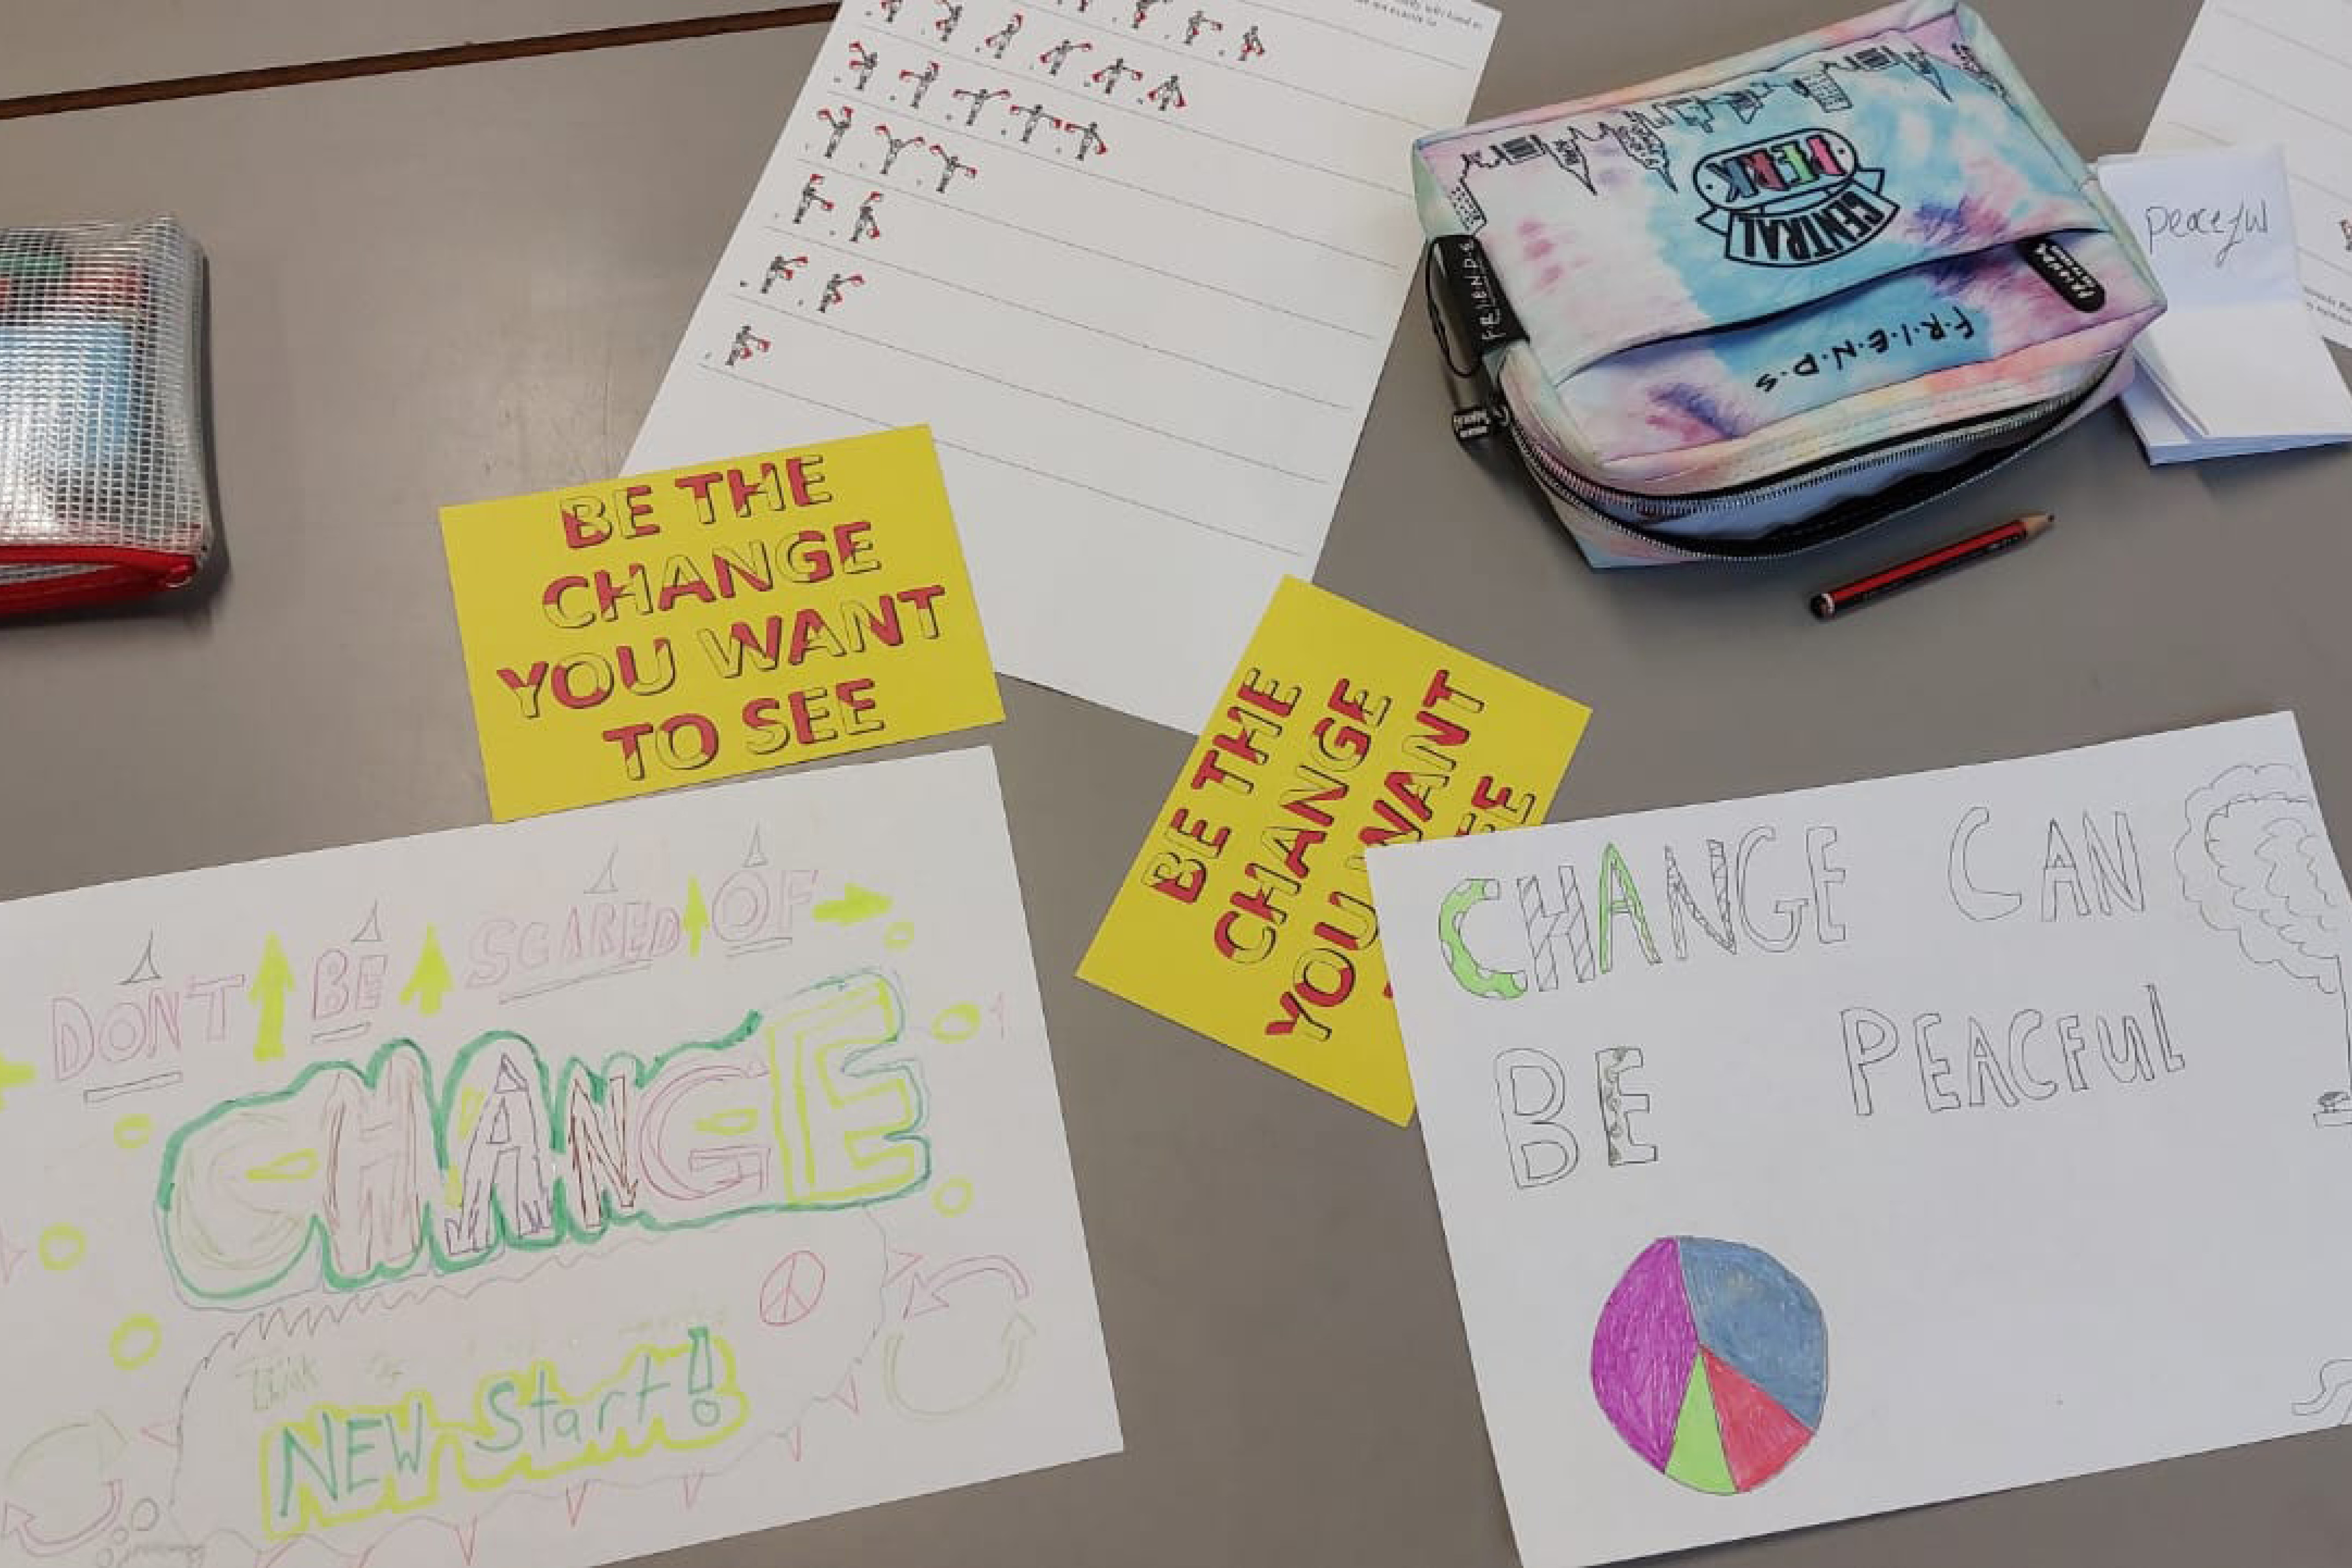 BE THE
CHANGE
YOU WANT
TO SEE
BE THE
CHANGE
YOU WANT
CENTRAL
PERK
F·R·I·E·N·D·S
F·R·I·E·N·D·S
peaceful
DON'T BE SCARED OF
CHANGE
NEW Start!
CHANGE CAN
BE PEACFUL